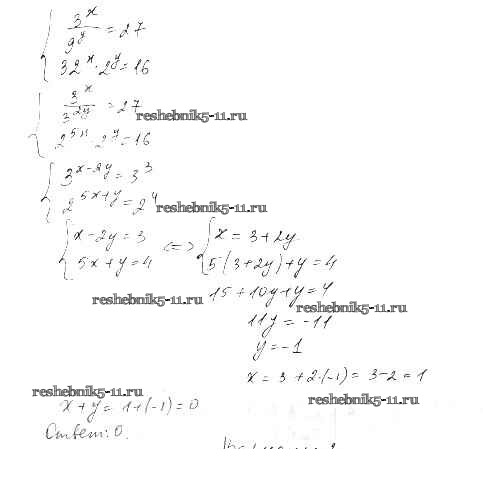 3^x / 9^y = 27
32^x · 2^y = 16
3^x / 3^2y = 27
reshebnik5-11.ru
2^5x · 2^y = 16
3^x-2y = 3^3
2^5x+y = 2^4
reshebnik5-11.ru
x - 2y = 3 <=> x = 3 + 2y
5x + y = 4 5(3+2y)+y = 4
reshebnik5-11.ru
15 + 10y + y = 4
reshebnik5-11.ru
11y = -11
y = -1
x = 3 + 2·(-1) = 3 - 2 = 1
reshebnik5-11.ru
reshebnik5-11.ru
x + y = 1 + (-1) = 0
Ответ: 0.